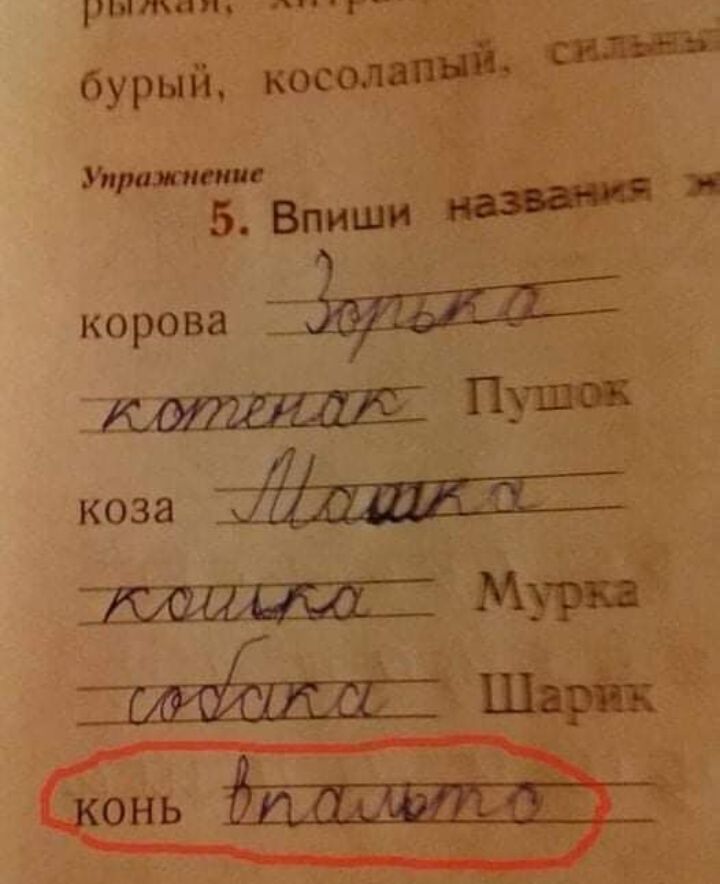 бурый, косолапый, сильны
Упражнение
5. Впиши названия ж
корова Зорька
котенак Пушок
коза Машка
кошка Мурка
собака Шарик
конь впальто